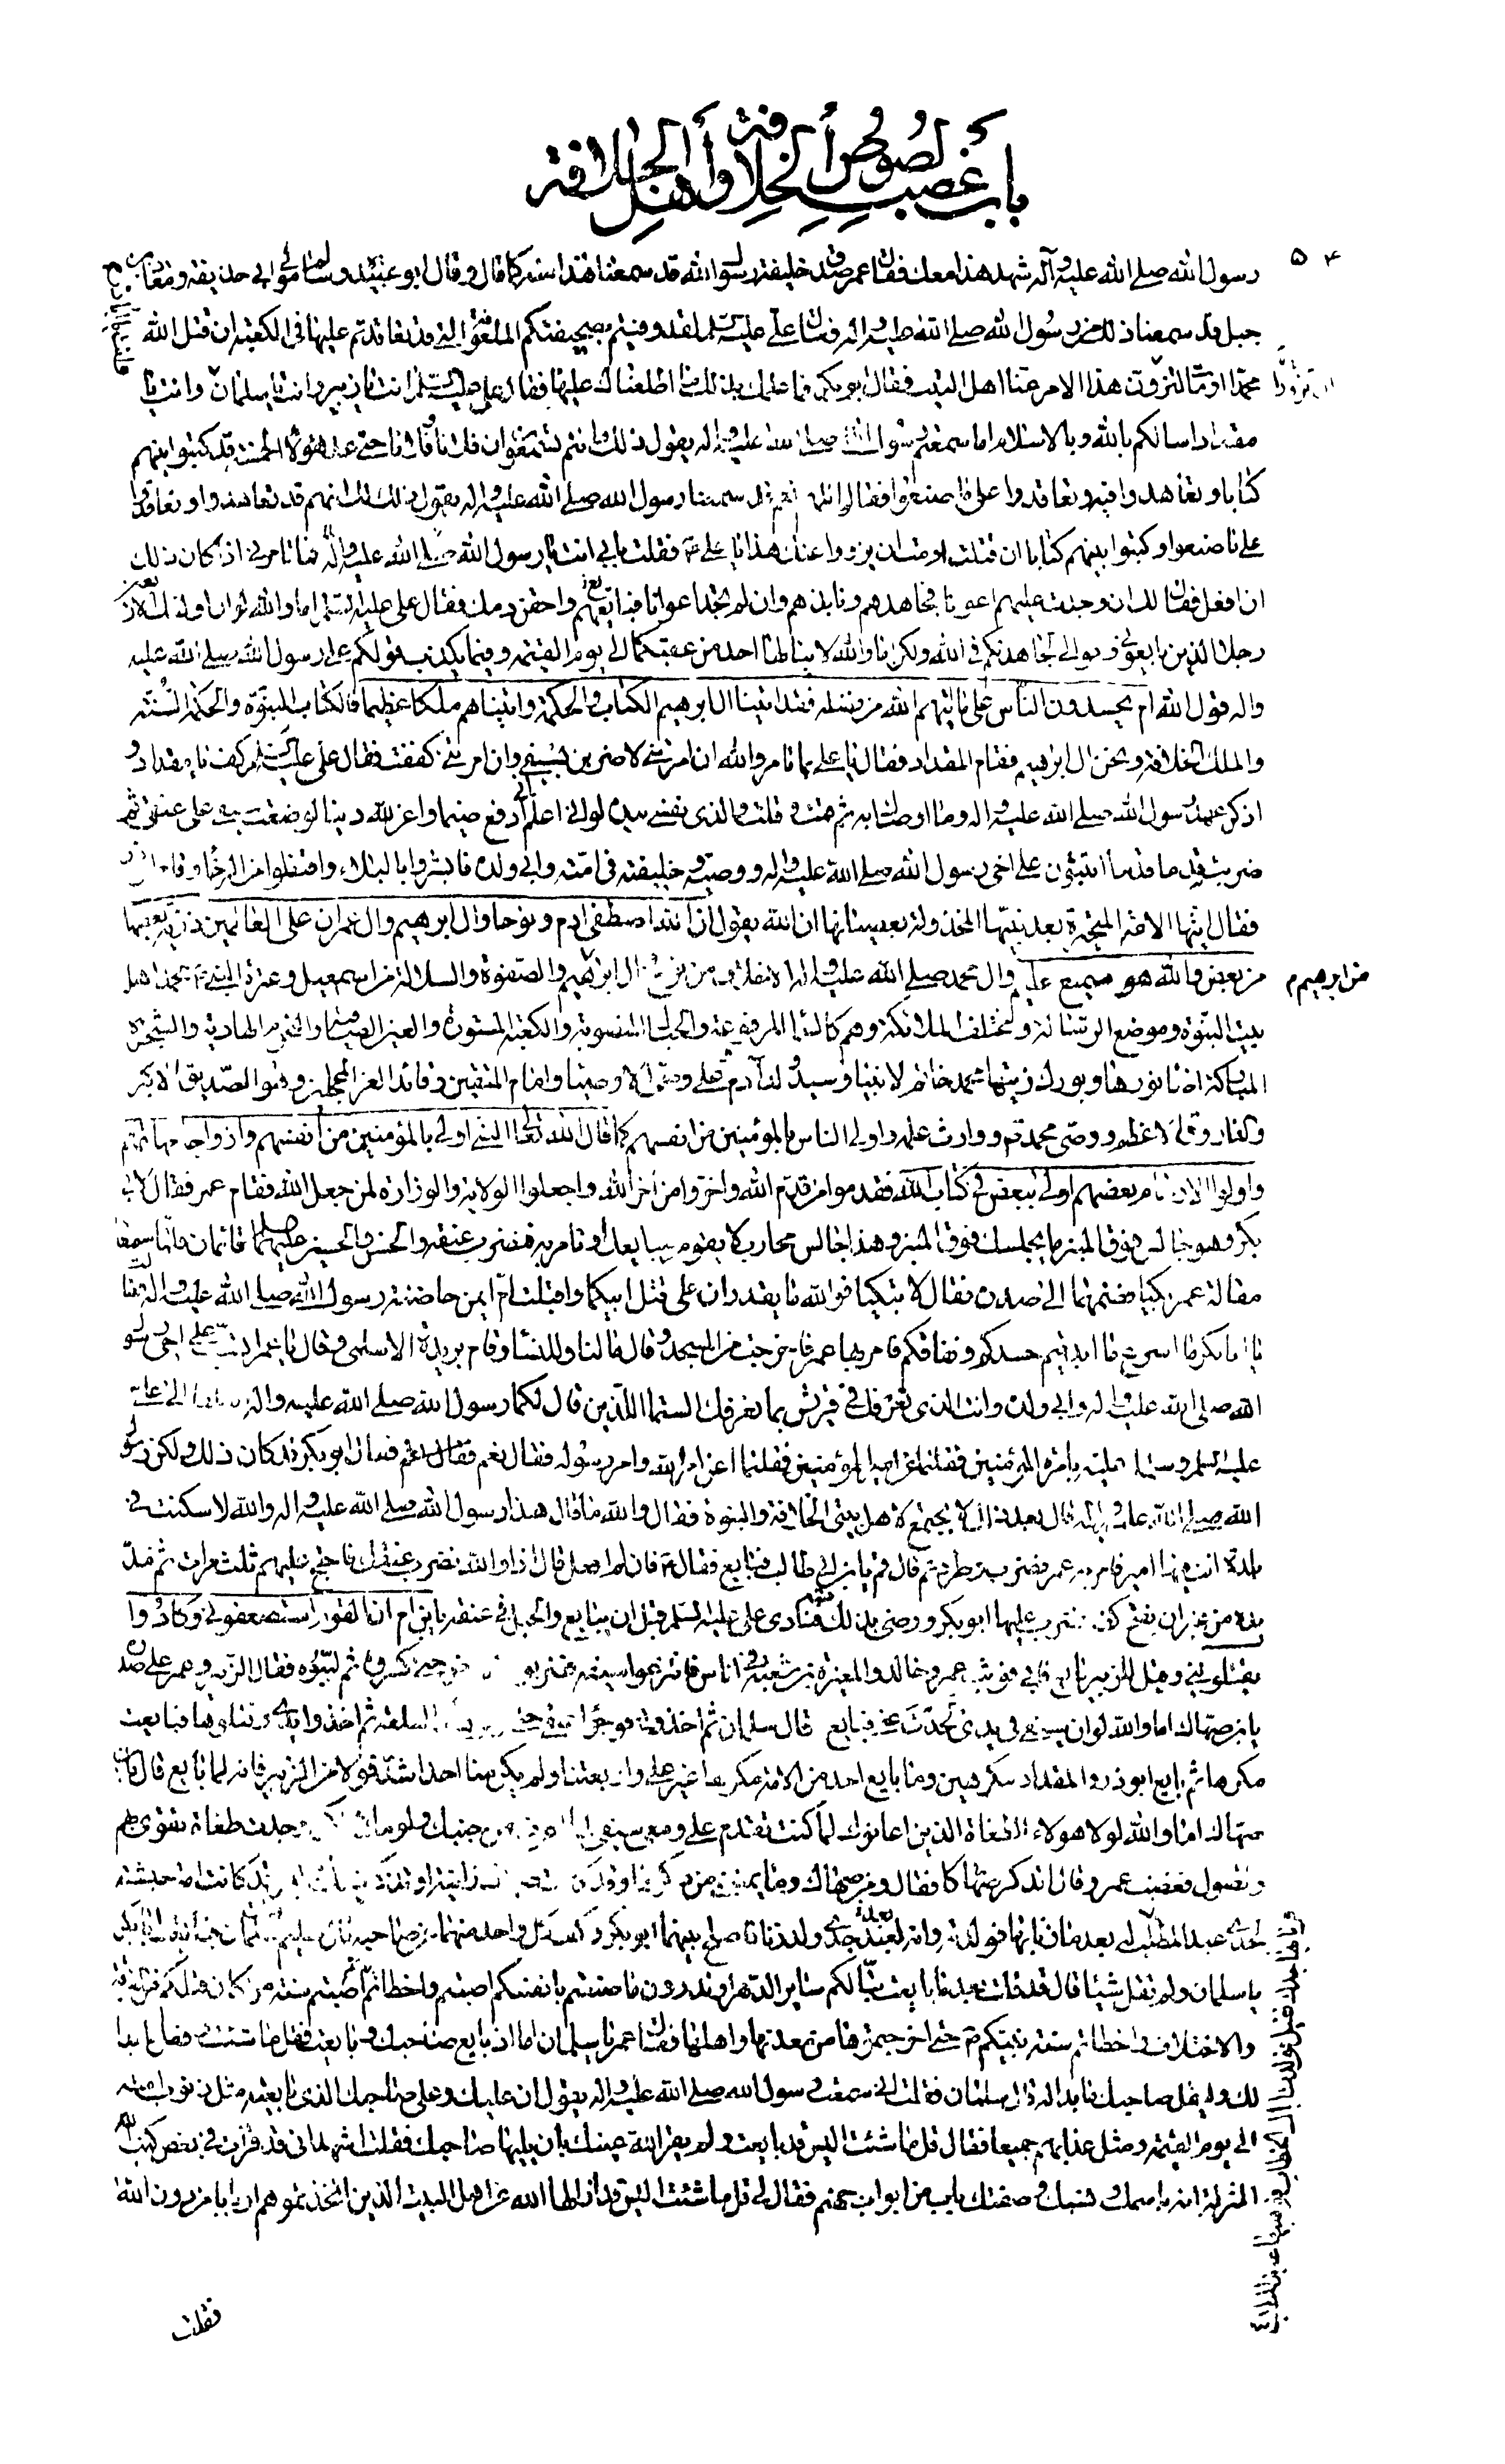 باب غصب لصوص الخلافة وأهل الجلافة
٥٤
رسول الله صلى الله عليه وآله شهد هذا معك فقال عمر صدق خليفة رسول الله قد سمعنا هذا منه كما قال وقال ابو عبيدة وسالم مولى ابي حذيفة ومعاذ بن
جبل قد سمعنا ذلك من رسول الله صلى الله عليه واله فقال علي عليه السلم لقد وفيتم بصحيفتكم الملعونة التي قد تعاقدتم عليها في الكعبة ان قتل الله
محمدا او مات لتزوون هذا الامر عنا اهل البيت فقال ابو بكر فما علمك بذلك ما اطلعناك عليها فقال علي عليه السلم انت يا زبير وانت يا سلمان وانت يا
مقداد اسالكم بالله وبالاسلام اما سمعتم رسول الله صلى الله عليه واله يقول ذلك وانتم تسمعون ان فلانا وفلانا حتى عد هؤلاء الخمسة قد كتبوا بينهم
كتابا وتعاهدوا فيه وتعاقدوا على ما صنعوا فقالوا اللهم نعم قد سمعنا رسول الله صلى الله عليه واله يقول ذلك لك انهم قد تعاهدوا وتعاقدوا
على ما صنعوا وكتبوا بينهم كتابا ان قتلت او مت ان يزووا عنك هذا يا علي فقلت بابي انت يا رسول الله صلى الله عليه واله فما تامرني اذا كان ذلك
ان افعل فقال لك ان وجدت عليهم اعوانا فجاهدهم ونابذهم وان لم تجد اعوانا فبايعهم واحقن دمك فقال علي عليه السلم اما والله لو ان اولئك الاربعين
رجلا الذين بايعوني وفوا لي لجاهدتكم في الله ولكن اما والله لا ينالها احد من عقبكما الى يوم القيمة وفيما يكذب قولكم على رسول الله صلى الله عليه
واله قول الله ام يحسدون الناس على ما اتيهم الله من فضله فقد اتينا ال ابرهيم الكتاب والحكمة واتيناهم ملكا عظيما فالكتاب النبوة والحكمة السنة
والملك الخلافة ونحن ال ابرهيم فقام المقداد فقال يا علي بما تامر والله ان امرتني لاضربن بسيفي وان امرتني كففت فقال علي عليه السلم كف يا مقداد و
اذكر عهد رسول الله صلى الله عليه واله وما اوصاك به ثم قمت وقلت والذي نفسي بيده لو اني اعلم اني ادفع ضيما واعز لله دينا لوضعت سيفي على عنقي ثم
ضربت به قدما قدما اتثبون على اخي رسول الله صلى الله عليه واله ووصيه وخليفته في امته وابي ولده فابشروا بالبلاء واقنطوا من الرخاء وقام ابو ذر
فقال ايتها الامة المتحيرة بعد نبيها المخذولة بعصيانها ان الله يقول ان الله اصطفى ادم ونوحا وال ابرهيم وال عمران على العالمين ذرية بعضها
من بعض والله سميع عليم وال محمد صلى الله عليه واله الاخلاف من نوح وال ابرهيم من ابرهيم والصفوة والسلالة من اسمعيل وعترة النبي محمد اهل
بيت النبوة وموضع الرسالة ومختلف الملائكة وهم كالسماء المرفوعة والجبال المنصوبة والكعبة المستورة والعين الصافية والنجوم الهادية والشجرة
المباركة اضاء نورها وبورك زيتها محمد خاتم الانبياء وسيد ولد ادم وعلي وصي الاوصياء وامام المتقين وقائد الغر المحجلين وهو الصديق الاكبر
والفاروق الاعظم ووصي محمد ووارث علمه واولى الناس بالمؤمنين من انفسهم كما قال الله تعالى النبي اولى بالمؤمنين من انفسهم وازواجه امهاتهم
واولوا الارحام بعضهم اولى ببعض في كتاب الله فقدموا من قدم الله واخروا من اخر الله واجعلوا الولاية والوزارة لمن جعل الله فقام عمر فقال لابي
بكر وهو جالس فوق المنبر ما يجلسك فوق المنبر وهذا جالس محارب لا يقوم يبايعك او تامر به فنضرب عنقه والحسن والحسين عليهما السلم قائمان فلما سمعا
مقالة عمر بكيا فضمهما الى صدره فقال لا تبكيا فوالله ما يقدران على قتل ابيكما واقبلت ام ايمن حاضنة رسول الله صلى الله عليه واله فقالت
يا ابا بكر ما اسرع ما ابديتم حسدكم ونفاقكم فامر بها عمر فاخرجت من المسجد وقال ما لنا وللنساء وقام بريدة الاسلمي وقال يا عمر اتثب على اخي رسول
الله صلى الله عليه واله وابي ولده وانت الذي نعرفك في قريش بما نعرفك الستما اللذين قال لكما رسول الله صلى الله عليه واله انطلقا الى علي
عليه السلم وسلما عليه بامرة المؤمنين فقلتما اعن امر الله وامر رسوله فقال نعم فقال ابو بكر قد كان ذلك ولكن رسول
الله صلى الله عليه واله قال بعد ذلك لا يجتمع لاهل بيتي الخلافة والنبوة فقال والله ما قال هذا رسول الله صلى الله عليه واله والله لا سكنت في
بلدة انت فيها امير فامر به عمر فضرب وطرد ثم قال قم يا بن ابي طالب فبايع فقال فان لم افعل قال اذا والله نضرب عنقك فاحتج عليهم ثلث مرات ثم مد
يده من غير ان يفتح كفه فضرب عليها ابو بكر ورضي بذلك منه فنادى علي عليه السلم قبل ان يبايع والحبل في عنقه يا بن ام ان القوم استضعفوني وكادوا
يقتلونني وقيل للزبير بايع فابى فوثب عمر وخالد والمغيرة بن شعبة في اناس فانتزعوا سيفه فضربوا به الارض حتى كسروه ثم لببوه فقال الزبير وعمر على صدره
يا بن صهاك اما والله لو ان سيفي في يدي لحدت عني فبايع قال سلمان ثم اخذوني فوجؤا عنقي حتى تركوها كالسلعة ثم اخذوا يدي وفتلوها فبايعت
مكرها ثم بايع ابو ذر والمقداد مكرهين وما بايع احد من الامة مكرها غير علي واربعتنا ولم يكن منا احد اشد قولا من الزبير فانه لما بايع قال يا بن
صهاك اما والله لولا هؤلاء الطغاة الذين اعانوك لما كنت تقدم علي ومعي سيفي لما اعرف من جبنك ولومك ولكن وجدت طغاة تقوى بهم
وتصول فغضب عمر وقال اتذكر صهاكا فقال ومن صهاك وما يمنعني من ذكرها وقد كانت صهاك زانية او تنكر ذلك او ليس قد كانت امة حبشية
لجدي عبد المطلب
يا سلمان ولم تقل شيئا قال قد قلت بعد ما بايعت تبا لكم سائر الدهر او تدرون ما صنعتم بانفسكم اصبتم واخطاتم اصبتم سنة من كان قبلكم من الفرقة
والاختلاف واخطاتم سنة نبيكم حتى اخرجتموها من معدنها واهلها فقال عمر يا سلمان اما اذ بايع صاحبك وبايعت فقل ما شئت وافعل ما بدا
لك وليقل صاحبك ما بدا له قال سلمان فقلت اني سمعت رسول الله صلى الله عليه واله يقول ان عليك وعلى صاحبك الذي بايعته مثل ذنوب امته
الى يوم القيمة ومثل عذابهم جميعا فقال قل ما شئت اليس قد بايعت ولم يقر الله عينك بان يليها صاحبك فقلت اشهد اني قد قرأت في بعض كتب الله
المنزلة انه باسمك ونسبك وصفتك باب من ابواب جهنم فقال لي قل ما شئت اليس قد ازالها الله عن اهل البيت الذين اتخذتموهم اربابا من دون الله
فقلت